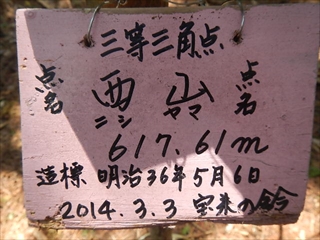 三等三角点
点名 西山 点名
ニシ ヤマ
617.61m
造標 明治36年5月6日
2014.3.3 宝来の鈴